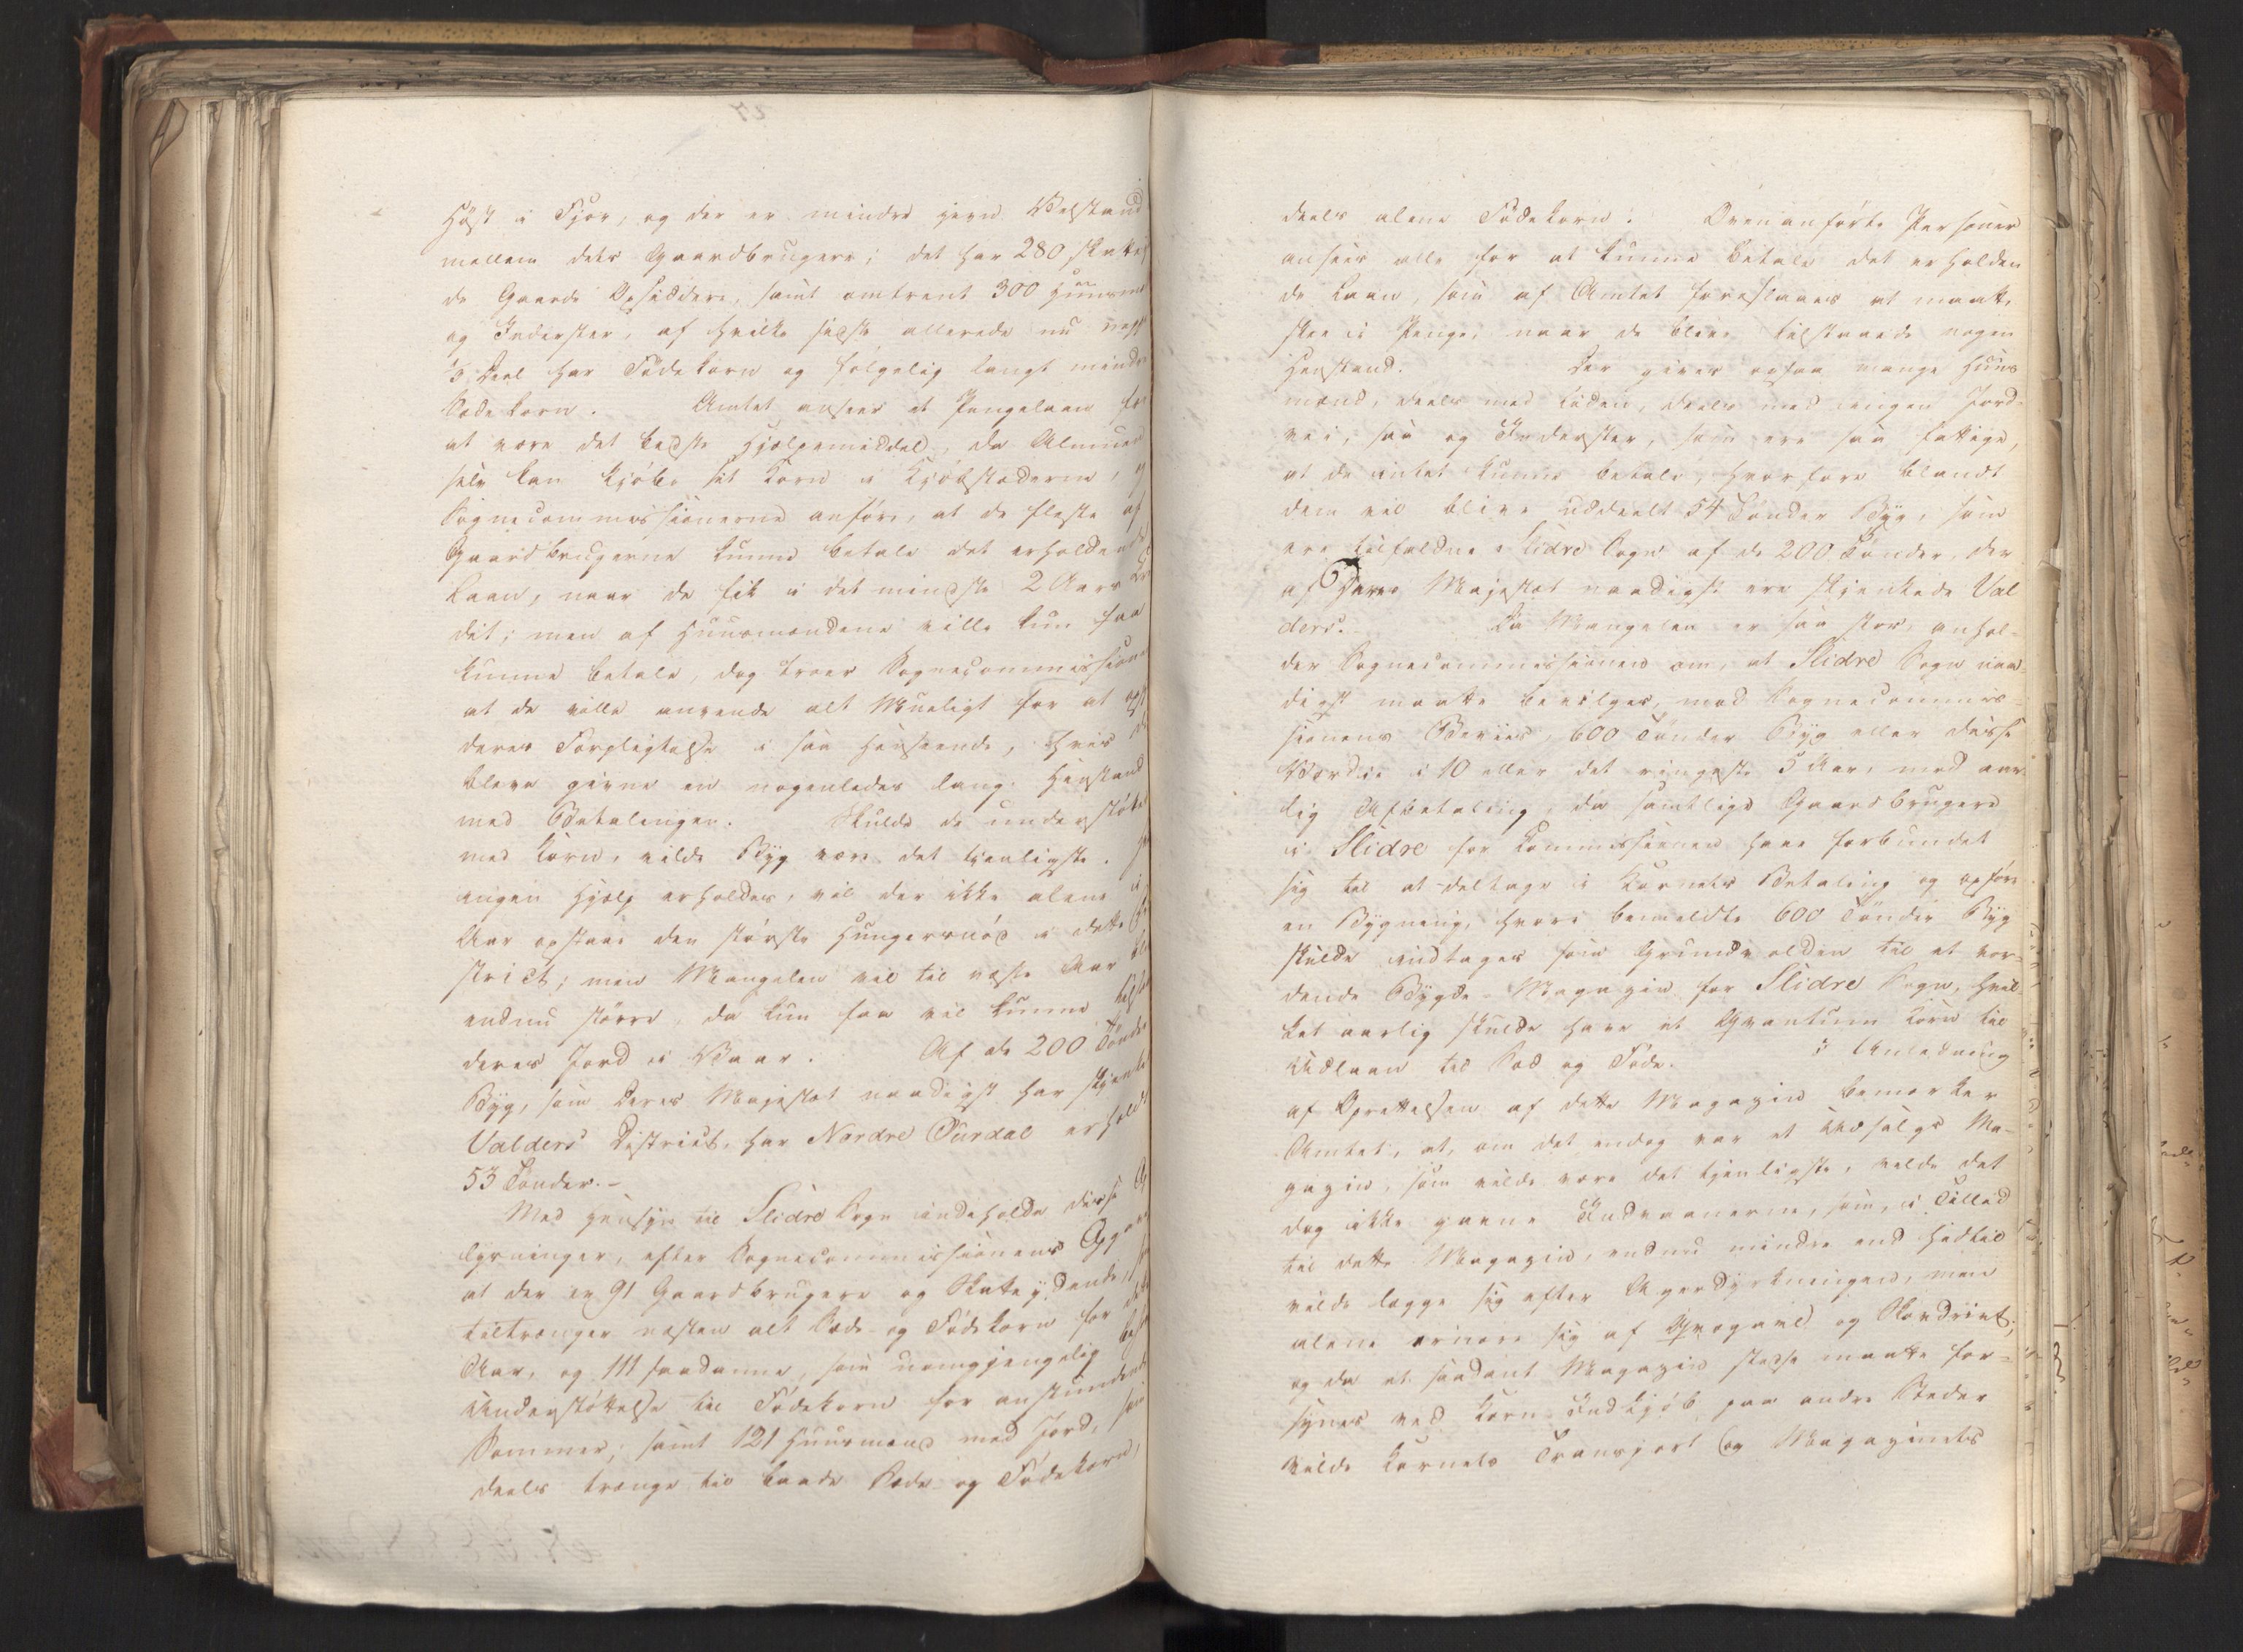 Høst i Fjor, og der er mindre jevn Velstand
mellem dets Gaardbrugere; det har 280 skatten-
de Gaarde Opsiddere, samt omtrent 300 Huusmæ
og Inderster, af hvilke sidste allerede nu neppe
1/3 Deel har Fødekorn og følgelig langt mindre
Sædekorn. Amtet anseer et Pengelaan for
at være det bedste Hjælpemiddel, da Almuen
selv kan kjøbe sit Korn i Kjøbstæderne, og
Sognecommissionerne anføre, at de fleste af
Gaardbrugerne kunne betale det erholdende
Laan, naar de fik i det mindste 2 Aars Cre
dit; men af Huusmændene ville kun faa
kunne betale, dog troer Sognecommissionen
at de ville anvende alt Mueligt for at opf
deres Forpligtelse i saa Henseende, hvis de
bleve givne en nogenledes lang Henstand
med Betalingen. Skulde de understøttes
med Korn, vilde Byg være det tjenligste.
ingen Hjælp erholdes, vil der ikke alene i
Aar opstaae den største Hungersnød i dette Di
strict; men Mangelen vil til næste Aar bli
endnu større, da kun faa vil kunne tilsaae
deres Jord i Vaar. Af de 200 Tønder
Byg, som Deres Majestæt naadigst har skjenket
Valders District, har Nordre Ourdal erholdt
53 Tønder. –
Med Hensyn til Slidre Sogn indeholde disse O
lysninger, efter Sognecommissionens Opgave
at der er 91 Gaardbrugere og Skatteydende, som
tiltrænger næsten alt Sæde- og Fødekorn for dette
Aar, og 111 saadanne, som uomgjengelig behøve
Understøttelse til Fødekorn for anstundende
Sommer; samt 121 Huusmænd med Jord, som
deels trænge til baade Sæde- og Fødekorn,
deels alene Fødekorn. Ovenanførte Personer
ansees alle for at kunne betale det erholden
de Laan, som af Amtet foreslaaes at maatte
skee i Penge, naar de blive tilstaaede nogen
Henstand. Der gives ogsaa mange Huus
mænd, deels med liden, deels med ingen Jord-
vei, saa og Inderster, som ere saa fattige,
at de intet kunne betale, hvorfore blandt
dem vil blive uddeelt 54 Tønder Byg, som
ere tilfaldne Slidre Sogn af de 200 Tønder, der
af Deres Majestæt naadigst ere skjenkede Val
ders. Da Mangelen er saa stor, anhol-
der Sognecommissionen om, at Slidre Sogn naa-
digst maatte bevilges, mod Sognecommis-
sionens Beviis, 600 Tønder Byg eller disses
Værdie i 10 eller det ringeste 5 Aar, med aar
lig Afbetaling, da samtlige Gaardbrugere
i Slidre for Commissionen have forbundet
sig til at deltage i Kornets Betaling og opføre
en Bygning, hvori bemeldte 600 Tønder Byg
skulde indtages som Grundvolden til et vor-
dende Bygde-Magazin for Slidre Sogn, hvil-
ket aarlig skulde have et Qvantum Korn til
Udlaan til Sæd og Føde. I Anledning
af Oprettelsen af dette Magazin bemærker
Amtet, at, om det endog var et Udsalgs Ma-
gazin, som vilde være det tjenligste, vilde det
dog ikke gavne Indvaanerne, som, i Tillid
til dette Magazin, endnu mindre end hidtil
vilde lægge sig efter Agerdyrkningen, men
alene ernære sig af Qvægavl og Skovdrivt;
og da et saadant Magazin stedse maatte for-
synes ved Korn Indkjøb paa andre Steder
vilde Kornets Transport og Magazinets